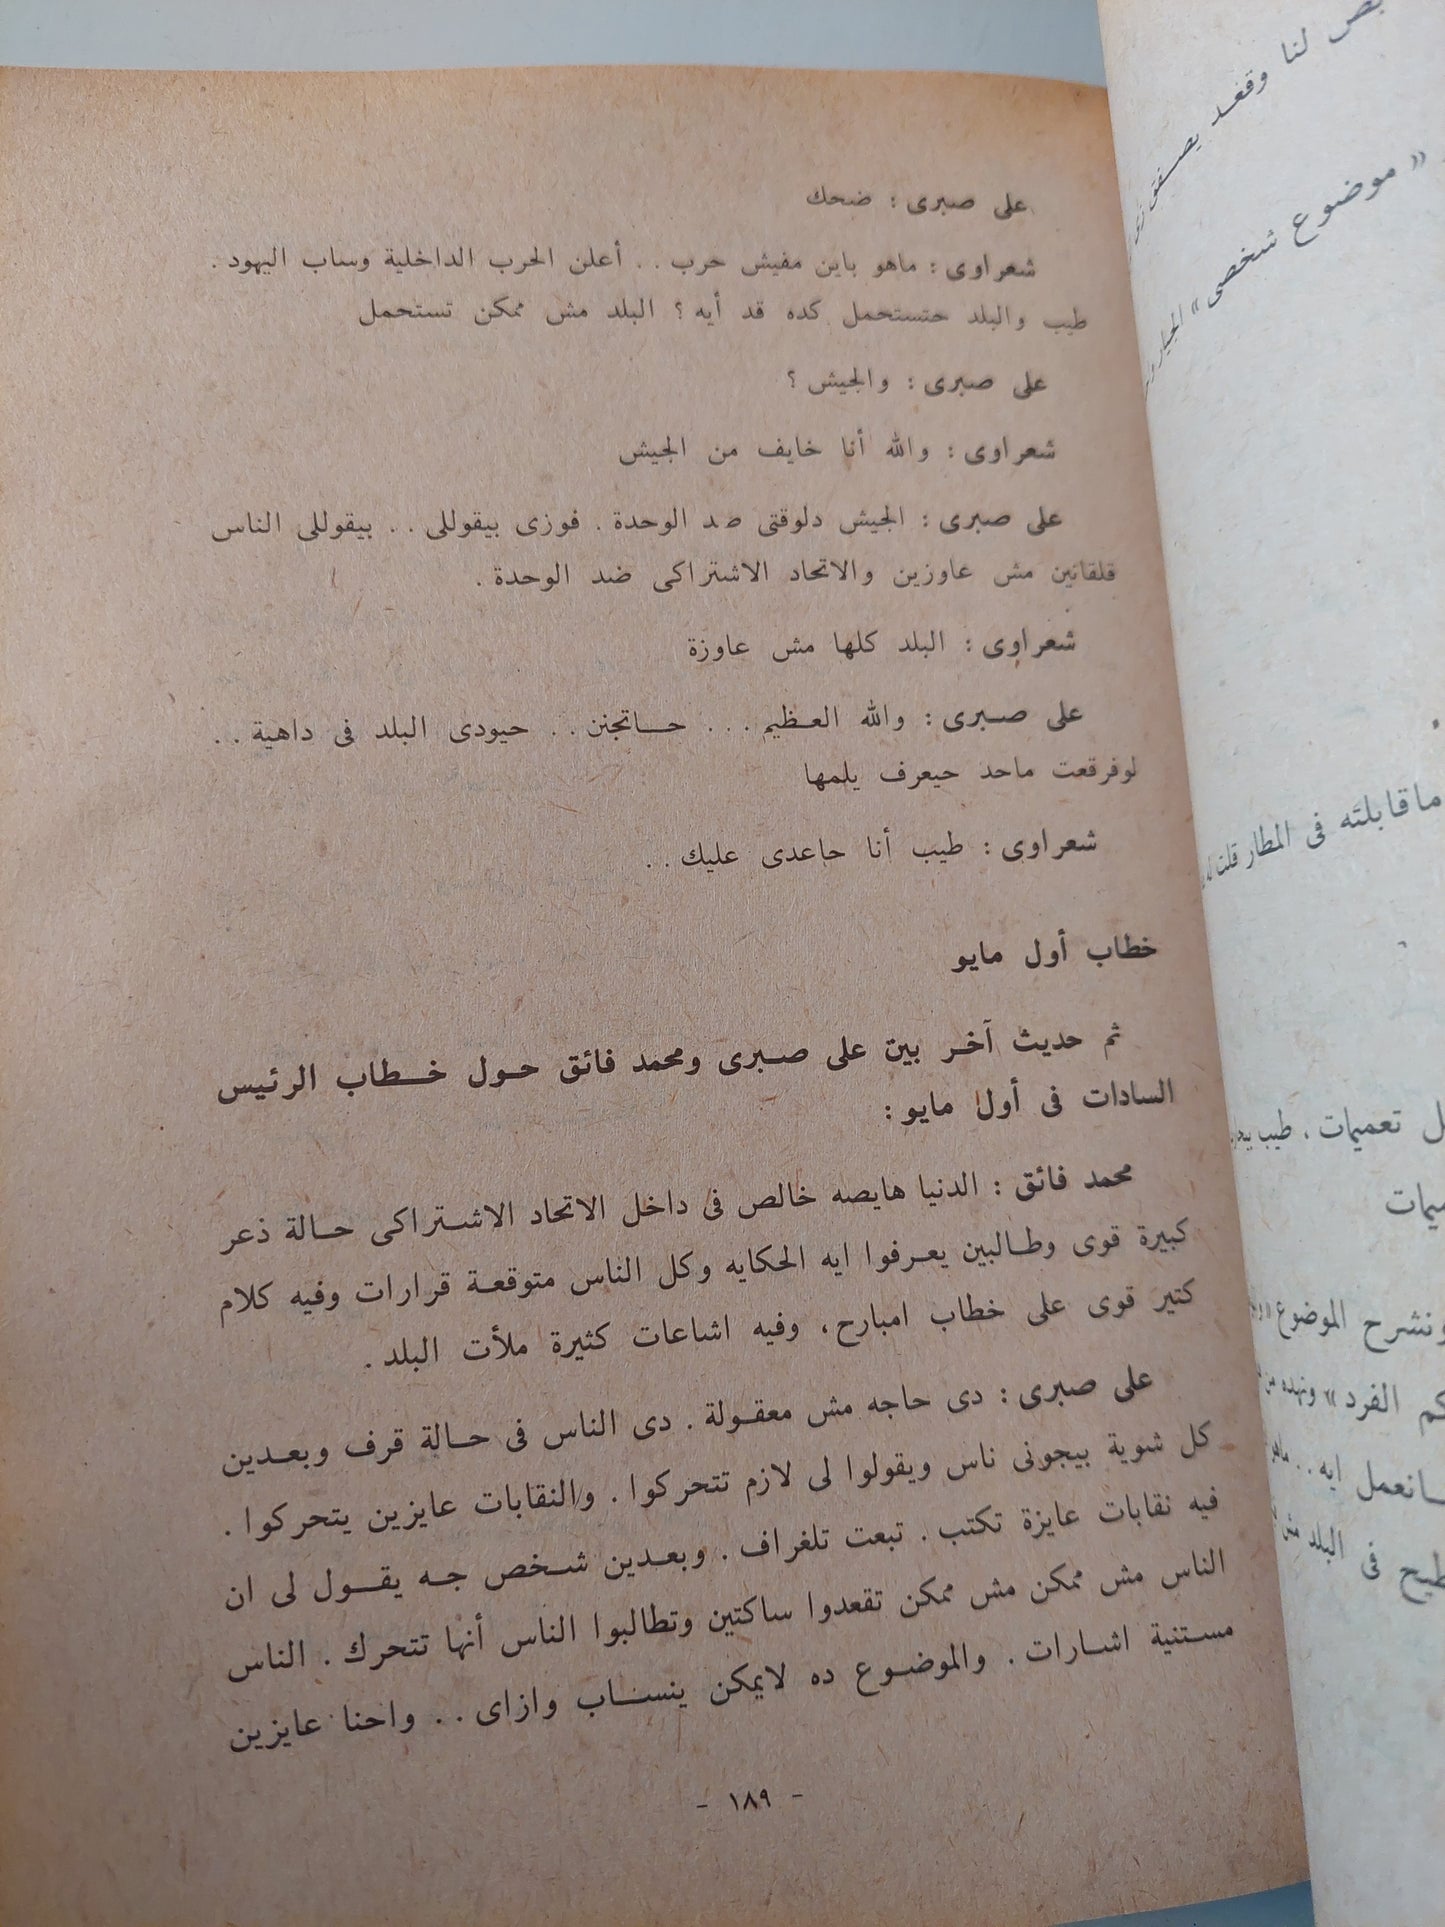 على صبرى : ضحك
شعراوى : ماهو باين مفيش حرب . . أعلن الحرب الداخلية وساب اليهود .
طيب والبلد حتستحمل كده قد أيه ؟ البلد مش ممكن تستحمل
على صبرى : والجيش ؟
شعراوى : والله أنا خايف من الجيش
على صبرى : الجيش دلوقتى ضد الوحدة . فوزى بيقوللى . . بيقوللى الناس
قلقانين مش عاوزين والاتحاد الاشتراكى ضد الوحدة .
شعراوى : البلد كلها مش عاوزة
على صبرى : والله العظيم . . . حاتجنن . . حيودى البلد فى داهية . .
لوفرقعت ماحد حيعرف يلمها
شعراوى : طيب أنا حاعدى عليك . .
خطاب أول مايو
ثم حديث آخر بين على صبرى ومحمد فائق حول خطاب الرئيس
السادات فى أول مايو :
محمد فائق : الدنيا هايصه خالص فى داخل الاتحاد الاشتراكى حالة ذعر
كبيرة قوى وطالبين يعرفوا ايه الحكايه وكل الناس متوقعة قرارات وفيه كلام
كتير قوى على خطاب امبارح ، وفيه اشاعات كثيرة ملأت البلد .
على صبرى : دى حاجه مش معقولة . دى الناس فى حالة قرف وبعدين
كل شوية بيجونى ناس ويقولوا لى لازم تتحركوا . والنقابات عايزين يتحركوا .
فيه نقابات عايزة تكتب . تبعت تلغراف . وبعدين شخص جه يقول لى ان
الناس مش ممكن مش ممكن تقعدوا ساكتين وتطالبوا الناس أنها تتحرك . الناس
مستنية اشارات . والموضوع ده لايمكن ينساب وازاى . . واحنا عايزين
- ١٨٩ -
لنا وقعد يصفق
« موضوع شخصى »
ماقابلته فى المطار قلت
تعميمات ، طيب
ونشرح الموضوع
الفرد »
انعمل ايه . .
فى البلد مش